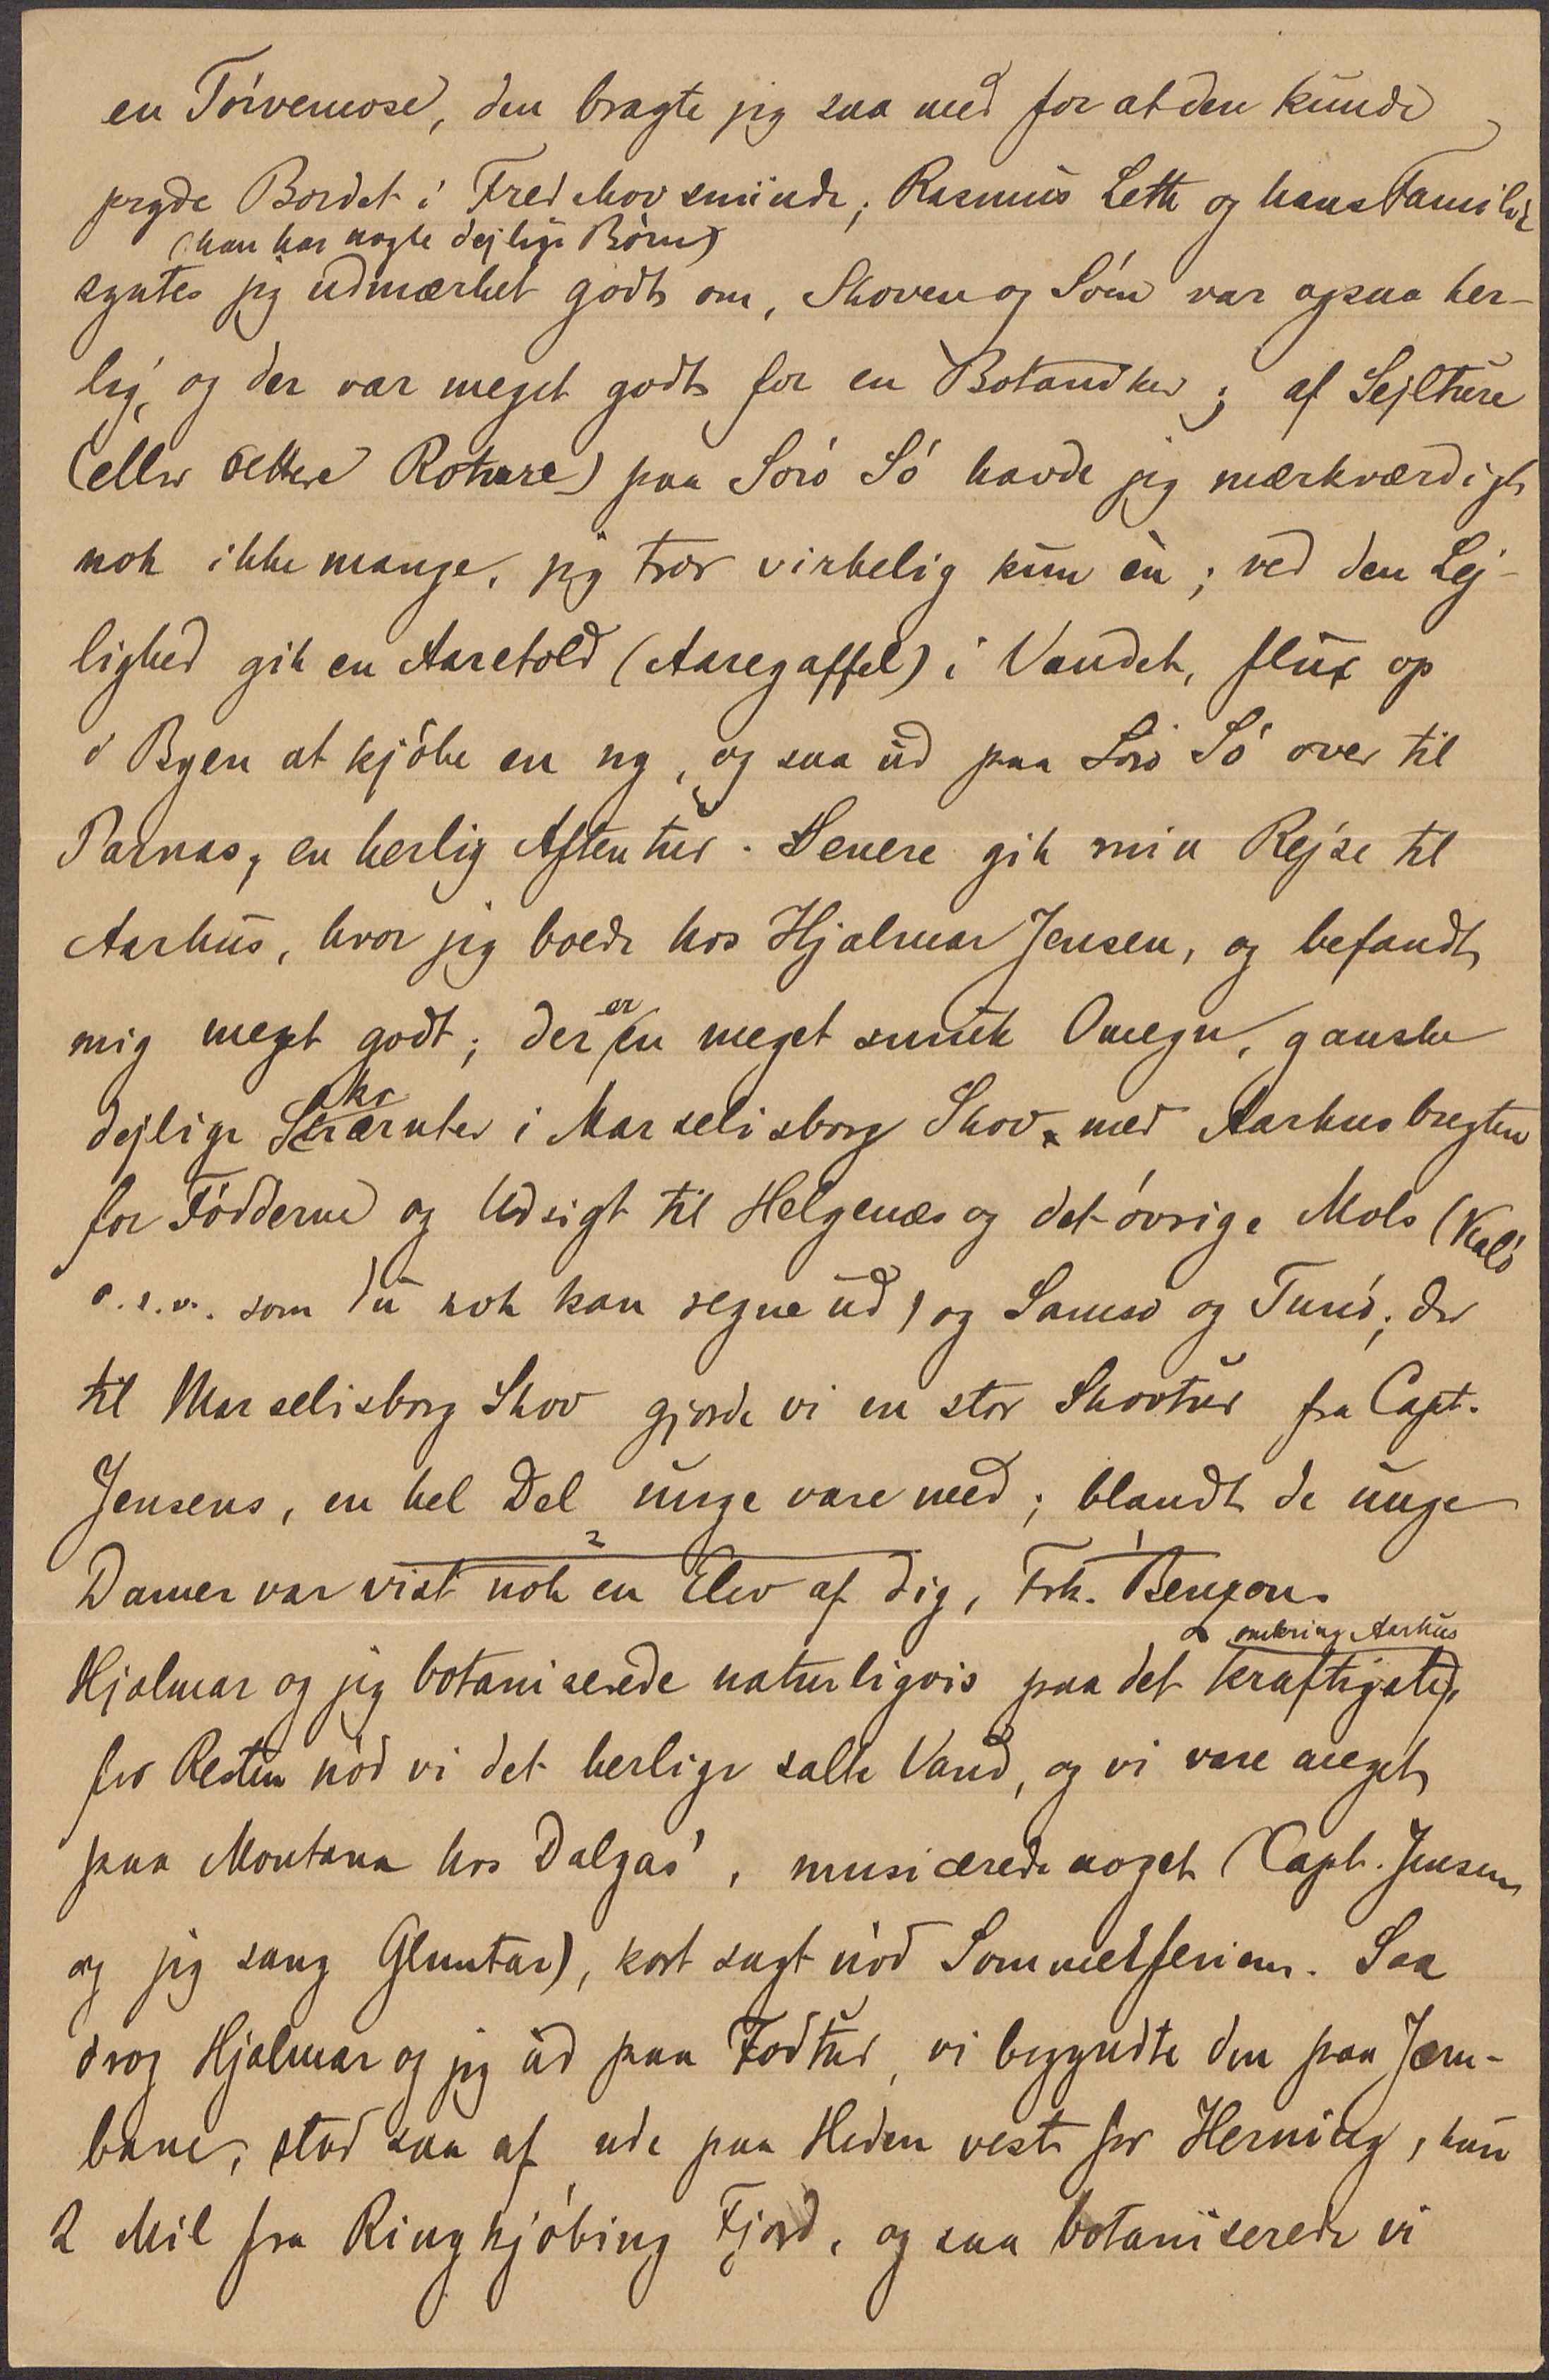 en Törvemose, den bragte jig saa med for at den kunde
pryde Bordet i Frederiksminde; Rasmus Leth og hans Familie
(han har nogle dejlige Börn)
syntes jig udmærket godt om, Skoven og Söen var ogsaa her-
lig, og der var meget godt for en Botaniker; af Sejlture
(eller rettere Roture) paa Sorö Sö havde jig mærkværdigt
nok ikke mange, jig tror virkelig kun èn; ved den Lej-
lighed gik en Aaretold (Aaregaffel) i Vandet, flux op
i Byen at kjöbe en ny, og saa ud paa Sorö Sö over til
Parnas, en herlig Aftentur. Senere gik min Rejse til
Aarhus, hvor jig boede hos Hjalmar Jensen, og befandt
mig meget godt; der er en meget smuk Omegn, ganske
dejlige Skrænter i Marselisborg Skov med Aarhusbugten
for Födderne og Udsigt til Helgenæs og det övrige Mols (Kalö
o.s.v. som Du nok kan regne ud) og Samsö og Tunö; der
til Marselisborg Skov gjorde vi en stor Skovtur fra Capt.
Jensens, en hel Del unge vare med; blandt de unge
Damer var vist nok en Elev af Dig, Frk. Benzon.
omkring Aarhus
Hjalmar og jig botaniserede naturligvis paa det kraftigste,
for Resten nöd vi det herlige salte Vand, og vi vare meget
paa Montana hos Dalgas', musicerede noget (Capt. Jensen
og jig sang Gluntar), kort sagt nöd Sommerferien. Saa
drog Hjalmar og jig ud paa Fodtur, vi begyndte den paa Jærn-
bane, stod saa af ude paa Heden vest for Herning, kun
2 Mil fra Ringkjöbing Fjord, og saa botaniserede vi